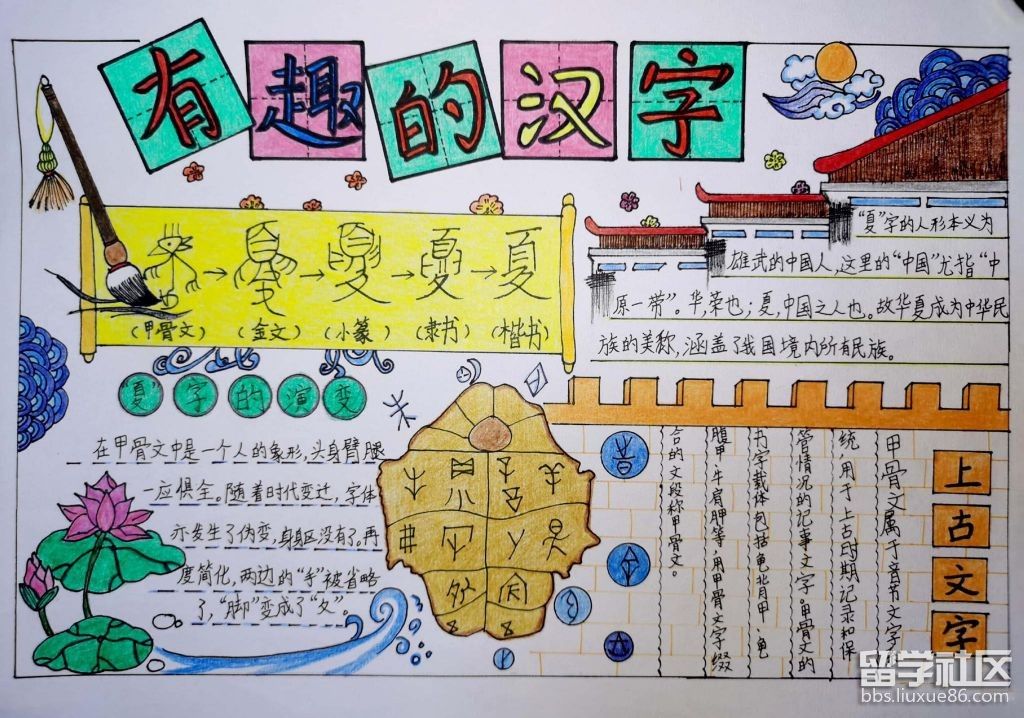 有趣的汉字
(甲骨文) (金文) (小篆) (隶书) (楷书)
"夏"字的人形本义为
雄武的中国人,这里的"中国"尤指"中
原一带"。华,荣也;夏,中国之人也。故华夏成为中华民
族的美称,涵盖了我国境内所有民族。
"夏"字的演变
在甲骨文中是一个人的象形,头身臂腿
一应俱全。随着时代变迁,字体
亦发生了伪变,身身区没有了。再
度简化,两边的"手"被省略
了,"脚"变成了"夂"。
上古文字
甲骨文属于音节文字系
统,用于上古时期记录和保
管情况的记事文字。甲骨文的
书字载体包括龟北月甲、龟
腹甲、牛肩胛等,用甲骨文字缀
合的文段称甲骨文。
留学社区
bbs.liuxue86.com